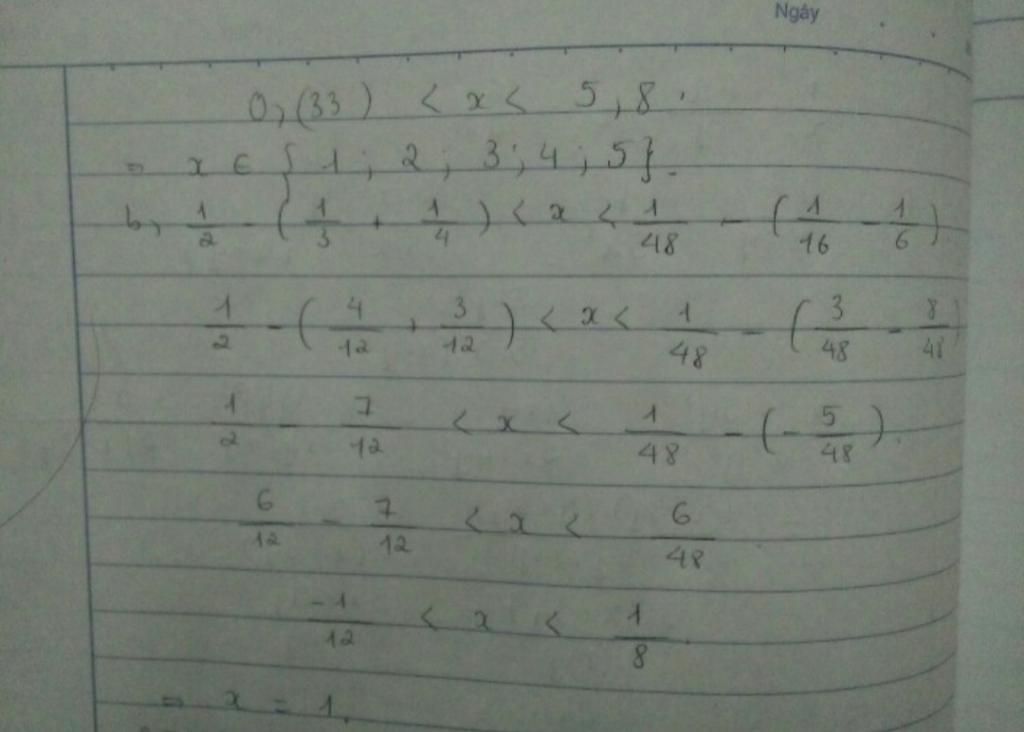 Ngày
0,(33) < x < 5,8.
= x ∈ { 1 ; 2 ; 3 ; 4 ; 5 }.
b, 1/2 - ( 1/3 + 1/4 ) < x < 1/48 - ( 1/16 - 1/6 )
1/2 - ( 4/12 + 3/12 ) < x < 1/48 - ( 3/48 - 8/48 )
1/2 - 7/12 < x < 1/48 - ( - 5/48 ).
6/12 - 7/12 < x < 6/48
-1/12 < x < 1/8
= x = 1.